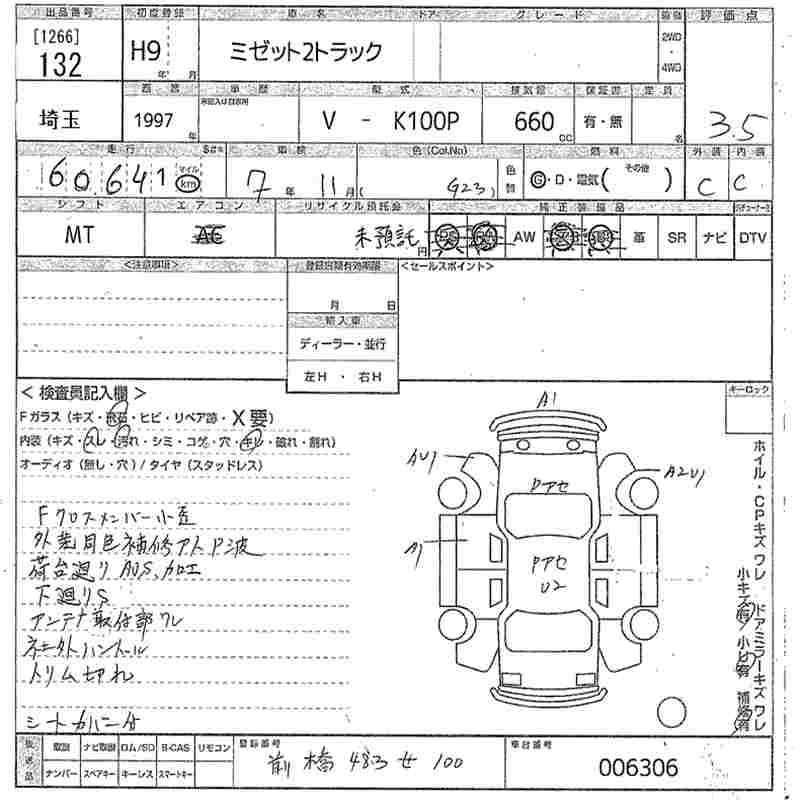 出品番号 初度登録 車名 ドア グレード 装備 評価点
[1266]
132 H9 年 月 ミゼット2トラック 2WD ・ 4WD 3.5
車歴 型式 排気量 保証書 定員
埼玉 1997 年 V - K100P 660 CC 有・無 名
走行 車検 色(Col.No) 色替 燃料 外装 内装
60641 マイル km 7 年 11 月 ( G23 ) G・D・電気( その他 ) C C
シフト エアコン リサイクル預託金 純正装備品
MT AC 未預託 円 AW 革 SR ナビ DTV
<注意事項> <セールスポイント>
月 日
輸入車
ディーラー・並行
左H ・ 右H
<検査員記入欄> キーロック
Fガラス(キズ・飛石・ヒビ・リペア跡・X要)
内装(キズ・スレ・汚れ・シミ・コゲ・穴・キレ・破れ・割れ)
オーディオ(無し・穴)/タイヤ(スタッドレス)
Fクロスメンバー小歪
外装同色補修アトP波
荷台廻りAUS、加工
下廻りS
アンテナ取付部ワレ
ネジ外ハンドル
トリム切れ
シートカバー付
A1
AU1
A2U1
Pアセ
A1
Pアセ
U2
ホイル・CPキズワレ ドアミラーキズワレ
小キズ有 小凹有 補修有
後送品 取説 ナビ取説 ロム/SD B-CAS リモコン 登録番号 車台番号
ナンバー スペアキー キーレス スマートキー 前橋 483 せ 100 006306